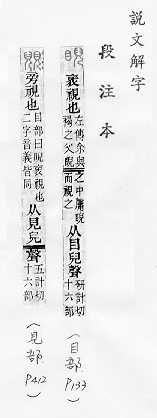 說文解字
段注本
睨
衺視也左傳余與
褐之父睨之中庸睨
而視之从目兒聲研計切
十六部
(目部
P133)
䚷
旁視也目部曰睨衺視也
二字音義皆同从見兒聲五計切
十六部
(見部
P412)